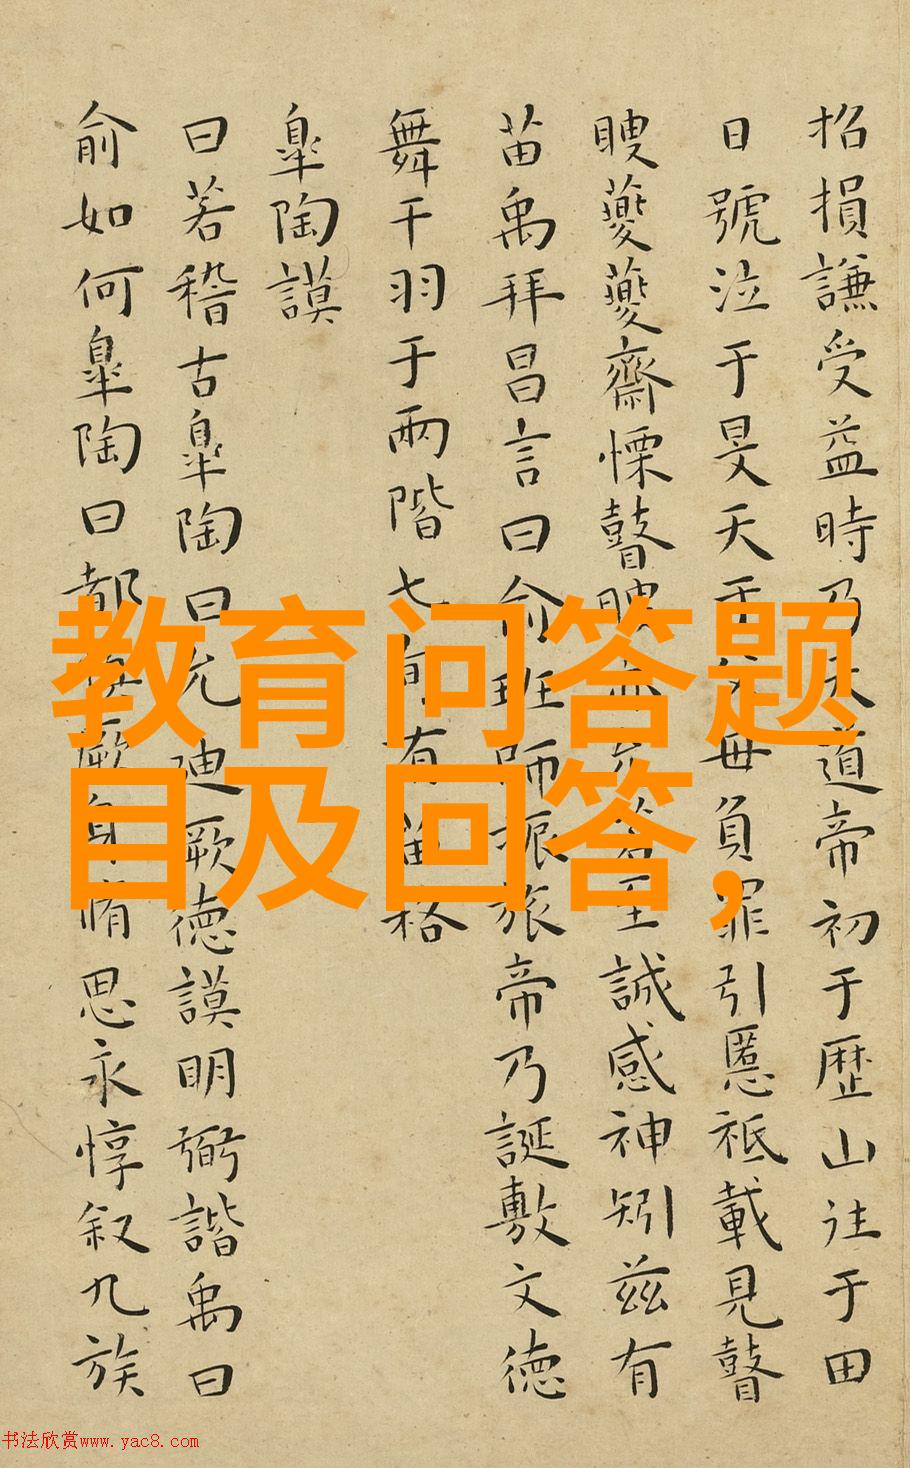 招損謙受益時乃天道帝初于歷山往于田
日號泣于旻天于父母負罪引慝祗載見瞽
瞍夔夔齋慄瞽瞍亦允若至誠感神矧茲有
苗禹拜昌言曰俞班師振旅帝乃誕敷文德
舞干羽于兩階七旬有苗格
皐陶謨
曰若稽古皐陶曰允迪厥德謨明弼諧禹曰
俞如何皐陶曰都慎厥身脩思永惇叙九族
教育问答题
目及回答，
书法欣赏www.yac8.com